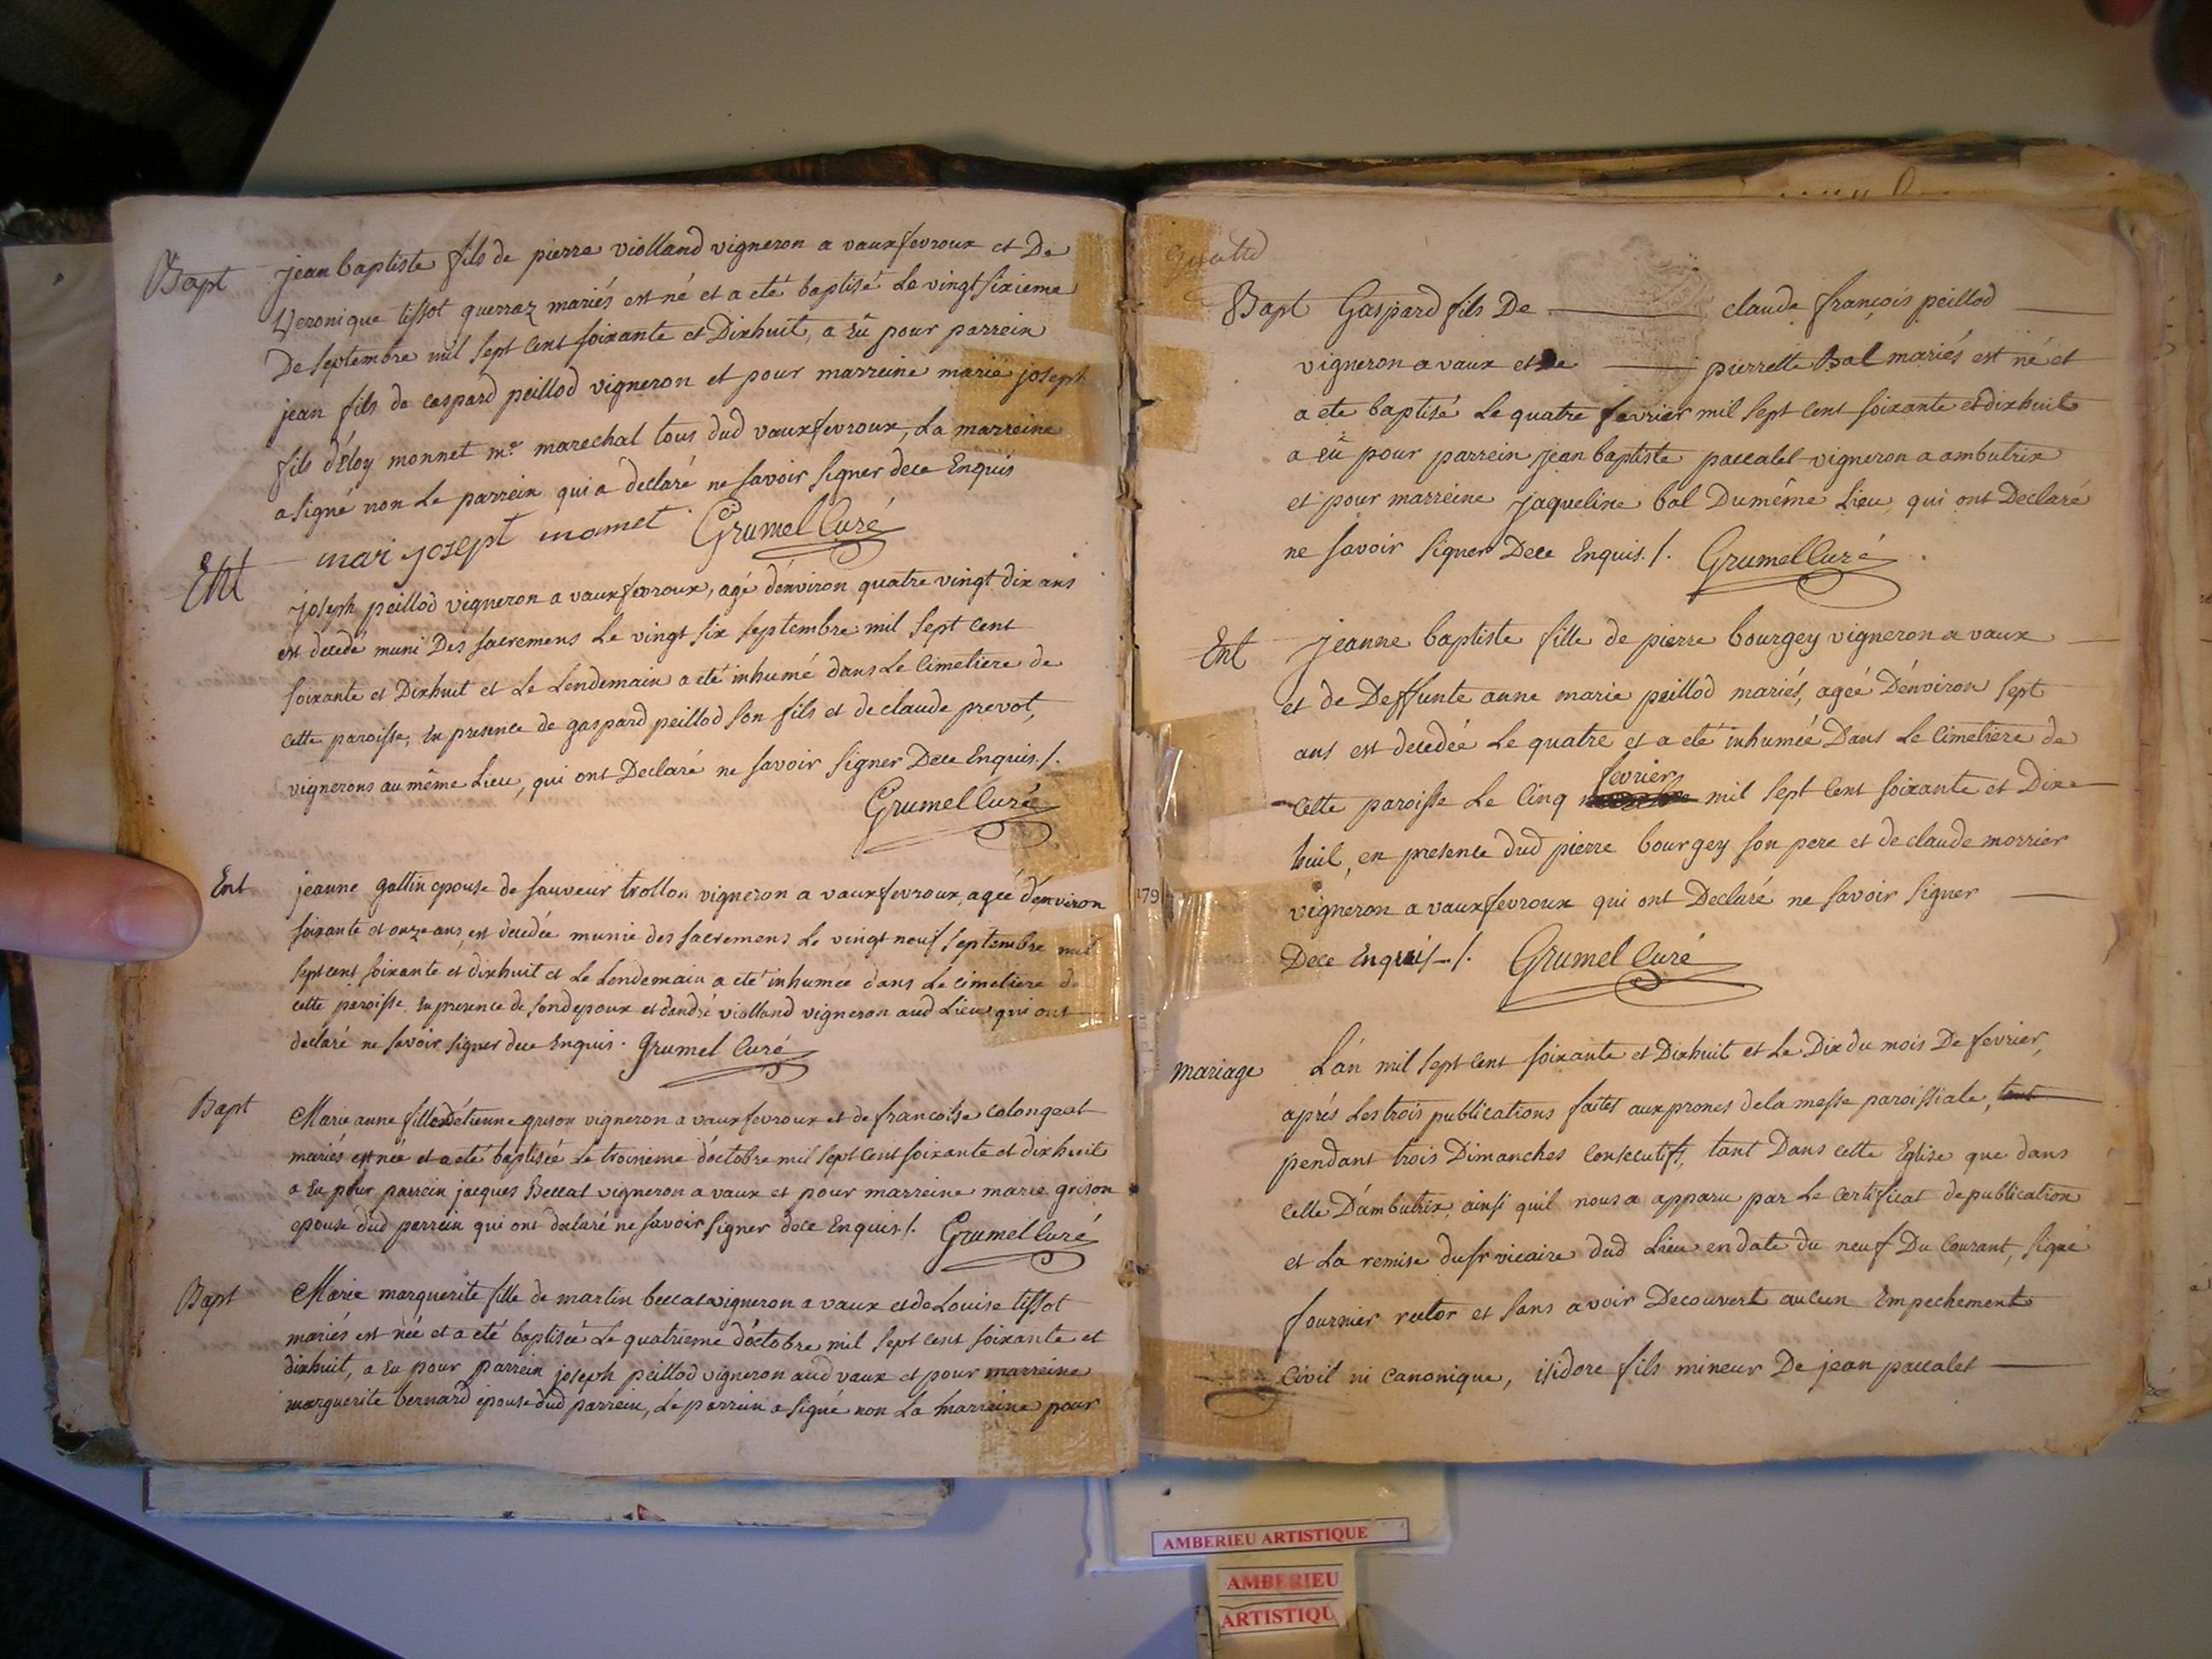 Bapt jean baptiste fils de pierre violland vigneron a vauxfevroux et De
Veronique tissot guerraz mariés est né et a eté baptisé Le vingt sixieme
De septembre mil sept cent soixante et Dixhuit, a Eü pour parrein
jean fils de Caspard peillod vigneron et pour marreine marie joseph
fils d'Eloy monnet me. marechal tous dud vauxfevroux, La marreine
a signé non Le parrein qui a declaré ne savoir signer dece Enquis
mari josept monnet Grumel Curé
Ent joseph peillod vigneron a vauxfevroux, agé d'environ quatre vingt dix ans
est decedé muni Des sacremens Le vingt six septembre mil sept cent
soixante et Dixhuit et Le Lendemain a eté inhumé dans Le Cimetiere de
cette paroisse, En presence de gaspard peillod son fils et de claude prevot,
vignerons au même Lieu, qui ont Declaré ne savoir signer Dece Enquis./.
Grumel Curé
Ent jeanne gottin epouse de sauveur trollon vigneron a vauxfevroux, agée d'environ
soixante et onze ans, est decedée munie des sacremens Le vingt neuf septembre mil
sept cent soixante et dixhuit et Le Lendemain a eté inhumée dans Le cimetiere de
cette paroisse En presence de sond epoux et d'andré violland vigneron aud Lieu qui ont
declaré ne savoir signer dece Enquis. Grumel Curé
Bapt Marie anne fille d'étienne grison vigneron a vauxfevroux et de francoise colongeat
mariés est née et a eté baptisée Le troisieme d'octobre mil sept cent soixante et dixhuit
a Eu pour parrein jacques Beccat vigneron a vaux et pour marreine marie grison
epouse dud parrein qui ont declaré ne savoir signer dece Enquis./. Grumel Curé
Bapt Marie marguerite fille de martin beccat vigneron a vaux et de Louise tissot
mariés est née et a eté baptisée Le quatrieme d'octobre mil sept cent soixante et
dixhuit, a Eu pour parrein joseph peillod vigneron aud vaux et pour marreine
marguerite bernard epouse dud parrein, Le parrein a signé non La marreine pour
179
Bapt Gaspard fils De claude françois peillod
vigneron a vaux et De pierrette Bal mariés est né et
a eté baptisé Le quatre fevrier mil sept cent soixante et dixhuit
a eü pour parrein jean baptiste paccalet vigneron a ambutrix
et pour marreine jaqueline bal Du même Lieu, qui ont Declaré
ne savoir signer Dece Enquis./. Grumel Curé
Ent jeanne baptiste fille de pierre bourgey vigneron a vaux
et de Deffunte anne marie peillod mariés, agéé D'environ sept
ans est decedée Le quatre et a eté inhumée Dans Le Cimetiere de
fevrier
cette paroisse Le Cinq mil sept Cent soixante et Dix
huit, en presence dud pierre bourgey son pere et de claude morrier
vigneron a vauxfevroux qui ont Declaré ne savoir signer
Dece Enquis./. Grumel Curé
mariage L'an mil sept cent soixante et Dixhuit et Le Dix du mois De fevrier,
aprés Les trois publications faites aux prones de la messe paroissiale, tant
pendant trois Dimanches Consecutifs, tant Dans cette Eglise que dans
celle D'ambutrix, ainsi quil nous a apparu par Le Certificat de publication
et La remise du sr vicaire dud Lieu en date du neuf Du Courant, signé
fournier rector et sans avoir Decouvert aucun Empechement
Civil ni Canonique, isidore fils mineur De jean paccalet
AMBERIEU ARTISTIQUE
AMBERIEU
ARTISTIQU